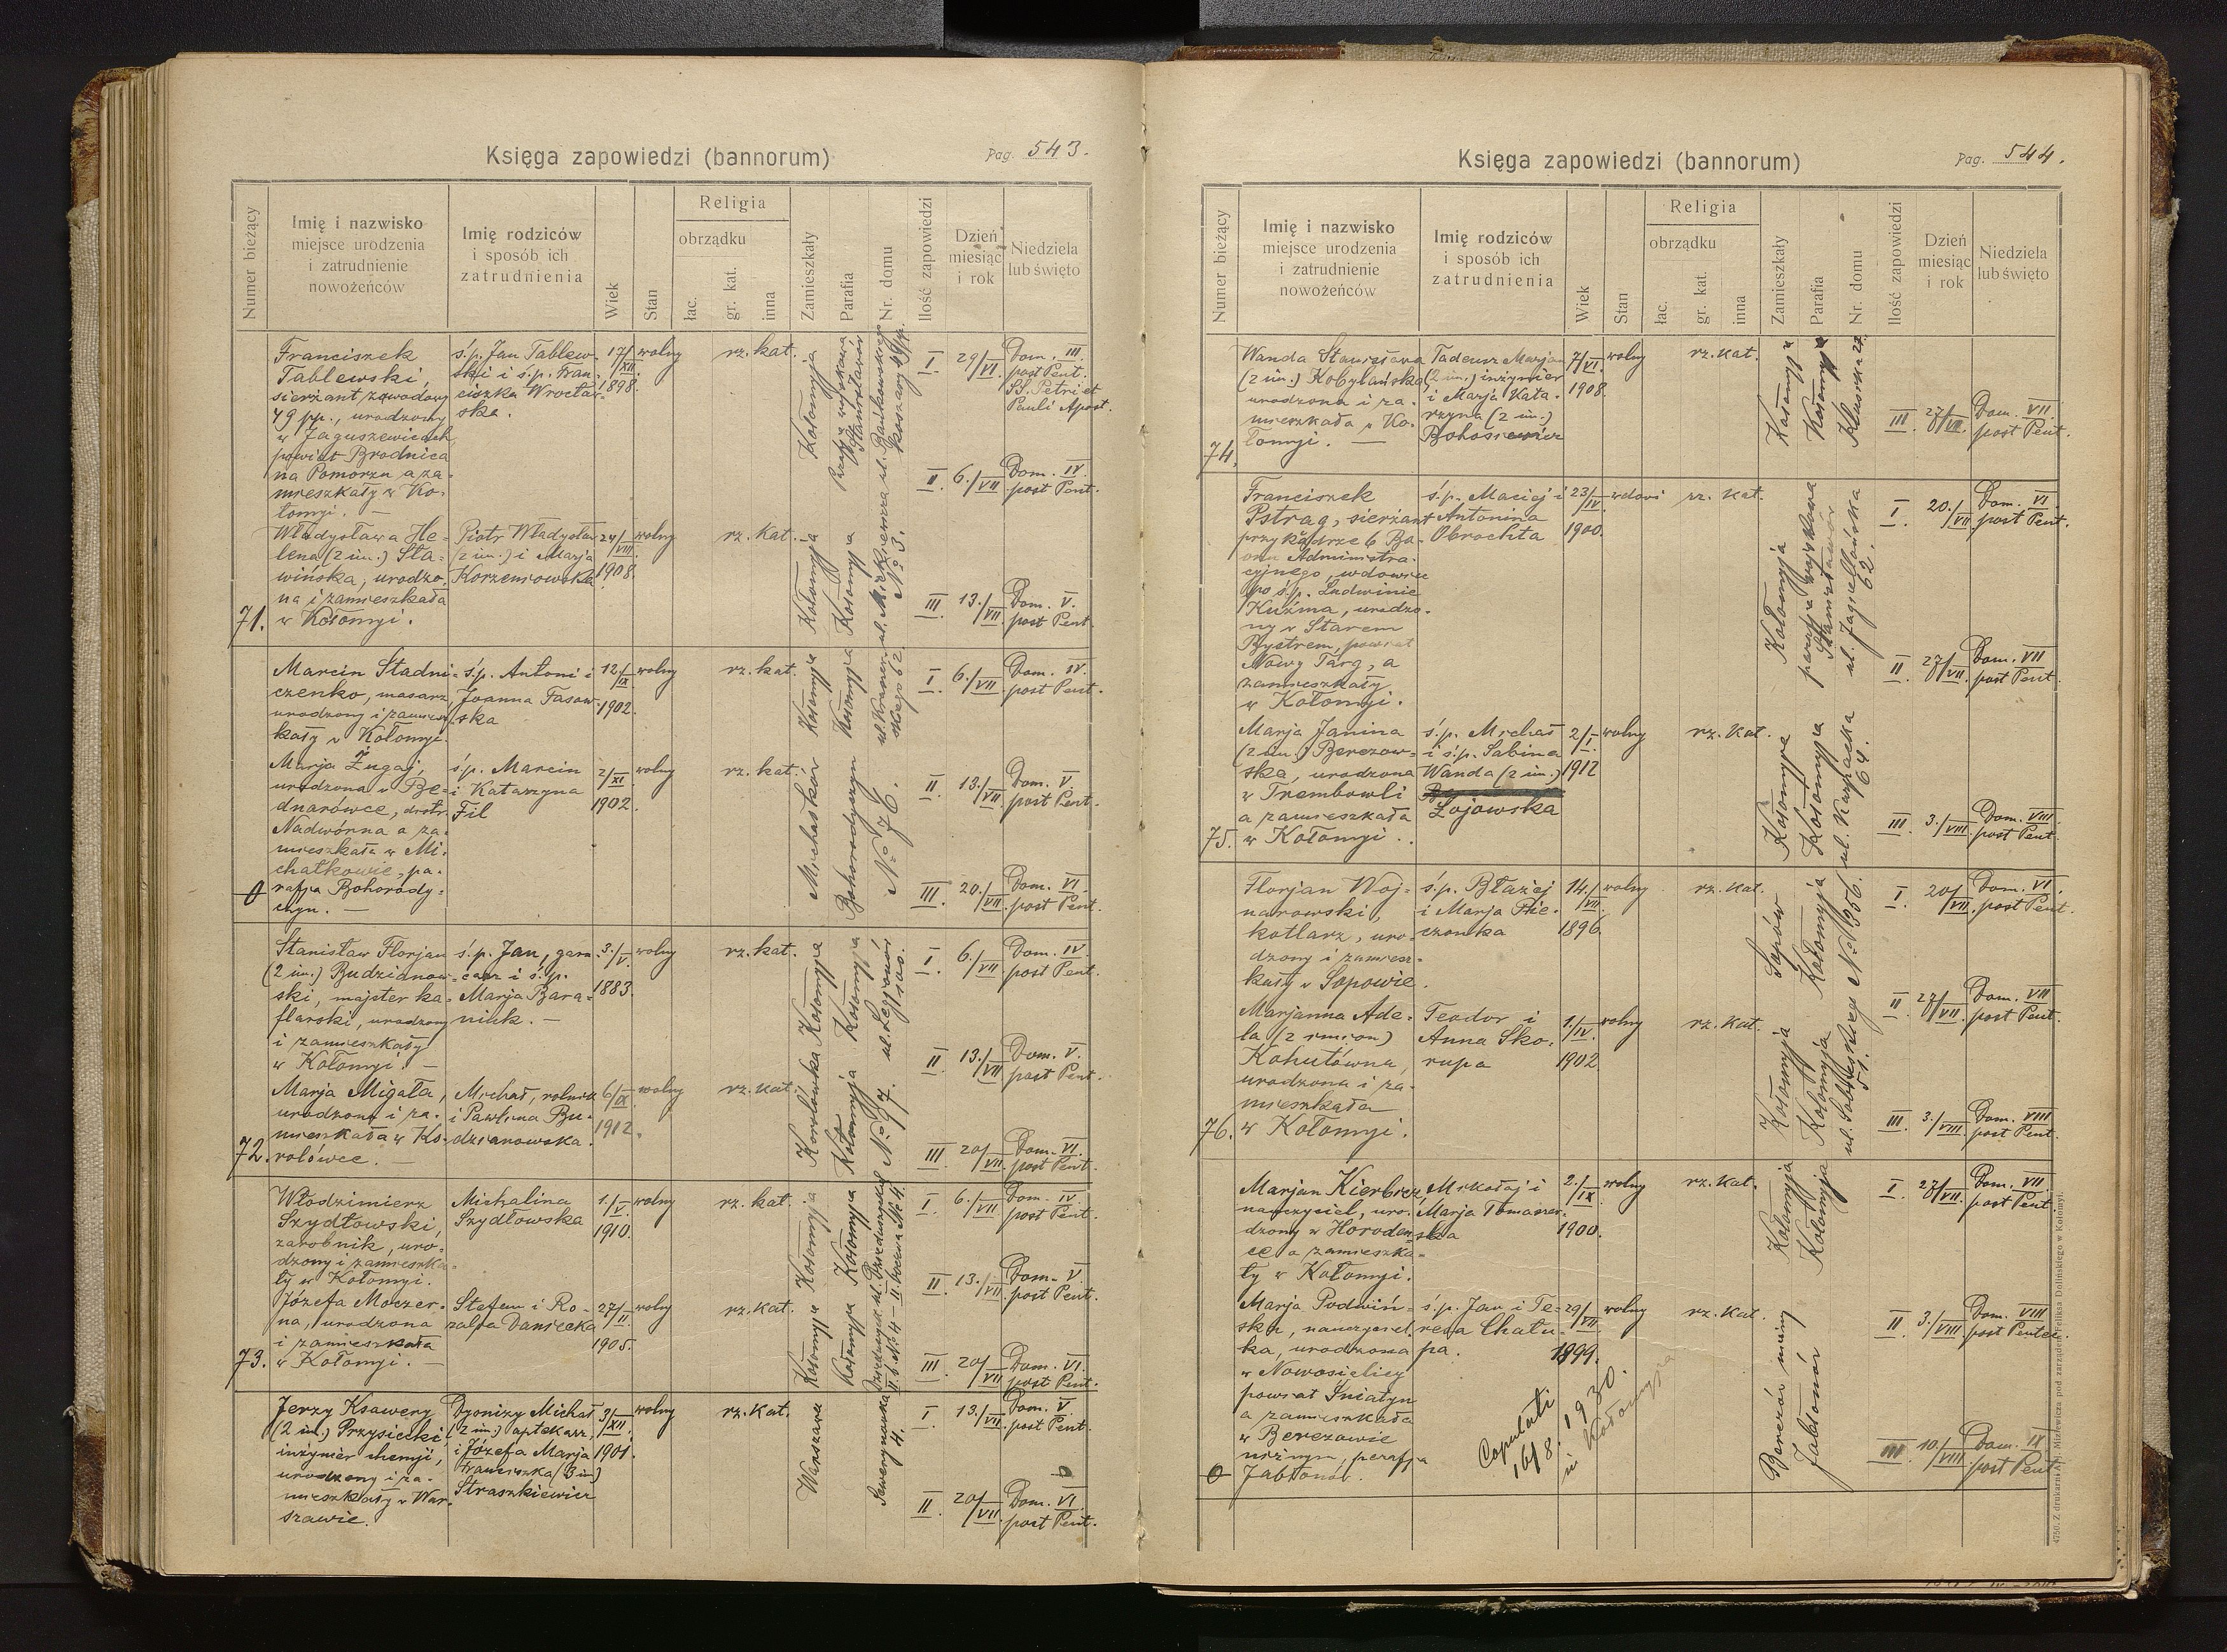 Księga zapowiedzi (bannorum)
Pag. 543.
Numer bieżący
Imię i nazwisko
miejsce urodzenia
i zatrudnienie
nowożeńców
Imię rodziców
i sposób ich
zatrudnienia
Wiek
Stan
Religia
obrządku
łac.
gr. kat.
inna
Zamieszkały
Parafia
Nr. domu
Ilość zapowiedzi
Dzień
miesiąc
i rok
Niedziela
lub święto
Franciszek
Tablewski,
sierżant zawodowy
49 pp., urodzony
w Jaguszewicach
powiat Brodnica
na Pomorzu a za-
mieszkały w Ko-
łomyi. —
ś.p. Jan Tablew-
ski i ś.p. Fran-
ciszka Wrocław-
ska.
17/XII.
1898.
wolny
rz. kat.
Kołomyja
Stanisławów
koszary 49 pp.
I 29/VI. Dom. III.
post Pent.
SS. Petri et
Pauli Apost.
II. 6./VII. Dom. IV.
post Pent.
Władysława He-
lena (2 im.) Sła-
wińska, urodzo-
na i zamieszkała
w Kołomyi.
Piotr Władysław
(2 im.) i Marja
Korzeniowska
24/VIII.
1908.
wolny
rz. kat.
Kołomyja
Kołomyja
N° 3.
III 13./VII. Dom. V.
post Pent.
71.
Marcin Stadni-
czenko, masarz
urodzony i zamiesz-
kały w Kołomyi.
ś.p. Antoni i
Joanna Tasow-
ska
12/IX
1902.
wolny
rz. kat.
Kołomyja
Kołomyja
I. 6./VII. Dom. IV.
post Pent.
Marja Żugaj,
urodzona w Be-
dnarówce, distr.
Nadwórna a za-
mieszkała w Mi-
chałkowie, pa-
rafja Bohorody-
czyn. —
ś.p. Marcin
i Katarzyna
Fil
2/XI
1902.
wolny
rz. kat.
Michałków
Bohorodyczyn
N° 76.
II. 13./VII. Dom. V.
post Pent.
III. 20./VII. Dom. VI.
post Pent.
0
Stanisław Florjan
(2 im.) Budzianow-
ski, majster ka-
flarski, urodzony
i zamieszkały
w Kołomyi. —
ś.p. Jan, garn-
carz i ś.p.
Marja Bara-
niuk. —
3./V.
1883.
wolny
rz. kat.
Kołomyja
Kołomyja
ul. Legjonów
I 6./VII. Dom. IV
post Pent.
II 13./VII. Dom. V.
post Pent.
Marja Migała,
urodzona i za-
mieszkała w Ko-
rolówce. —
Michał, rolnik
i Pawlina Bu-
dzianowska.
6/IX
1912.
wolny
rz. kat.
Korolówka
Kołomyja
N° 97.
III 20/VII. Dom. VI.
post Pent.
72.
Włodzimierz
Szydłowski,
zarobnik, uro-
dzony i zamieszka-
ły w Kołomyi.
Michalina
Szydłowska
1./V
1910.
wolny
rz. kat.
Kołomyja
Kołomyja
I. 6./VII. Dom. IV.
post Pent.
II. 13./VII. Dom. V.
post Pent.
Józefa Moczer-
na, urodzona
i zamieszkała
w Kołomyi. —
Stefan i Ro-
zalja Daniecka
27/II
1905.
wolny
rz. kat.
Kołomyja
Kołomyja
III 20/VII Dom. VI.
post Pent.
73.
Jerzy Ksawery
(2 im.) Przysiecki,
inżynier chemji,
urodzony i za-
mieszkały w War-
szawie.
Dyonizy Michał
(2 im.) aptekarz,
i Józefa Marja
Franciszka (3 im)
Straszkiewicz
3/XII
1901.
wolny
rz. kat.
Warszawa
4.
I. 13./VII. Dom. V
post Pent.
II. 20/VII. Dom. VI.
post Pent.
Księga zapowiedzi (bannorum)
Pag. 544.
Numer bieżący
Imię i nazwisko
miejsce urodzenia
i zatrudnienie
nowożeńców
Imię rodziców
i sposób ich
zatrudnienia
Wiek
Stan
Religia
obrządku
łac.
gr. kat.
inna
Zamieszkały
Parafia
Nr. domu
Ilość zapowiedzi
Dzień
miesiąc
i rok
Niedziela
lub święto
Wanda Stanisława
(2 im.) Kobylańska
urodzona i za-
mieszkała w Ko-
łomyi. —
Tadeusz Marjan
(2 im.) inżynier
i Marja Kata-
rzyna (2 im.)
Bohosiewicz
7/VI.
1908.
wolny
rz. kat.
Kołomyja
Kołomyja
III 27/VII. Dom. VII.
post Pent.
74.
Franciszek
Pstrąg, sierżant
przy kadrze 6 Ba-
onu Administra-
cyjnego, wdowiec
po ś.p. Ludwinie
Kuźma, urodzo-
ny w Starem
Bystrem, powiat
Nowy Targ, a
zamieszkały
w Kołomyi.
ś.p. Maciej i
Antonina
Obrochta
23/IV
1900.
wdowi
rz. kat.
Kołomyja
parafja wojskowa
Stanisławów
ul. Jagiellońska
62.
I 20./VII Dom. VI.
post Pent.
II 27/VII. Dom. VII
post Pent.
Marja Janina
(2 im.) Berezow-
ska, urodzona
w Trembowli
a zamieszkała
w Kołomyi.
ś.p. Michał
i ś.p. Sabina
Wanda (2 im.)
Łojowska
2/I
1912
wolny
rz. kat.
Kołomyja
Kołomyja
ul. Karpacka
64.
III 3./VIII. Dom. VIII.
post Pent.
75.
Florjan Woj-
narowski,
kotlarz, uro-
dzony i zamiesz-
kały w Sopowie.
ś.p. Błażej
i Marja Tke-
czonka
14./VII.
1896.
wolny
rz. kat.
Sopów
Kołomyja
N° 356.
I 20/VII. Dom. VI.
post Pent.
II 27/VII. Dom. VII
post Pent.
Marjanna Ade-
la (2 imion)
Kohutówna,
urodzona i za-
mieszkała
w Kołomyi.
Teodor i
Anna Sko-
rupa
1./IV.
1902
wolny
rz. kat.
Kołomyja
Kołomyja
ul. Sobieskiego
51.
III 3./VIII. Dom. VIII
post Pent.
76.
Marjan Kierbicz,
nauczyciel, uro-
dzony w Horoden-
ce a zamieszka-
ły w Kołomyi.
Mikołaj i
Marja Tomaszew-
ska
2./IX
1900.
wolny
rz. kat.
Kołomyja
Kołomyja
I 27/VII. Dom. VII.
post Pent.
Marja Podwiń-
ska, nauczyciel-
ka, urodzona
w Nowosielicy
powiat Śniatyn
a zamieszkała
w Berezowie
niżnym, parafja
Jabłonów.
ś.p. Jan i Te-
resa Chału-
pa.
29/VII.
1899.
wolny
rz. kat.
Berezów niżny
Jabłonów
II 3./VIII. Dom. VIII
post Pentec.
III 10./VIII. Dom. IX
post Pent.
Copulati
16/8. 1930.
in Kołomyja
0
4750. Z drukarni A. J. Miziewicza pod zarządem Feliksa Dolińskiego w Kołomyi.